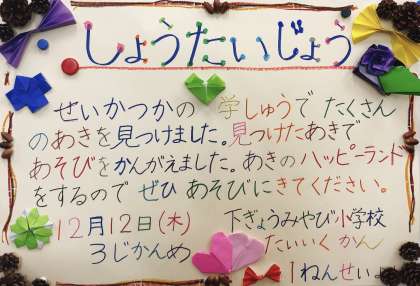 しょうたいじょう
せいかつかの 学しゅうで たくさん
のあきを見つけました。見つけたあきで
あそびをかんがえました。あきのハッピーランド
をするので ぜひ あそびにきてください。
12月12日(木) 下ぎょうみやび小学校
3じかんめ たいいくかん
1ねんせいより